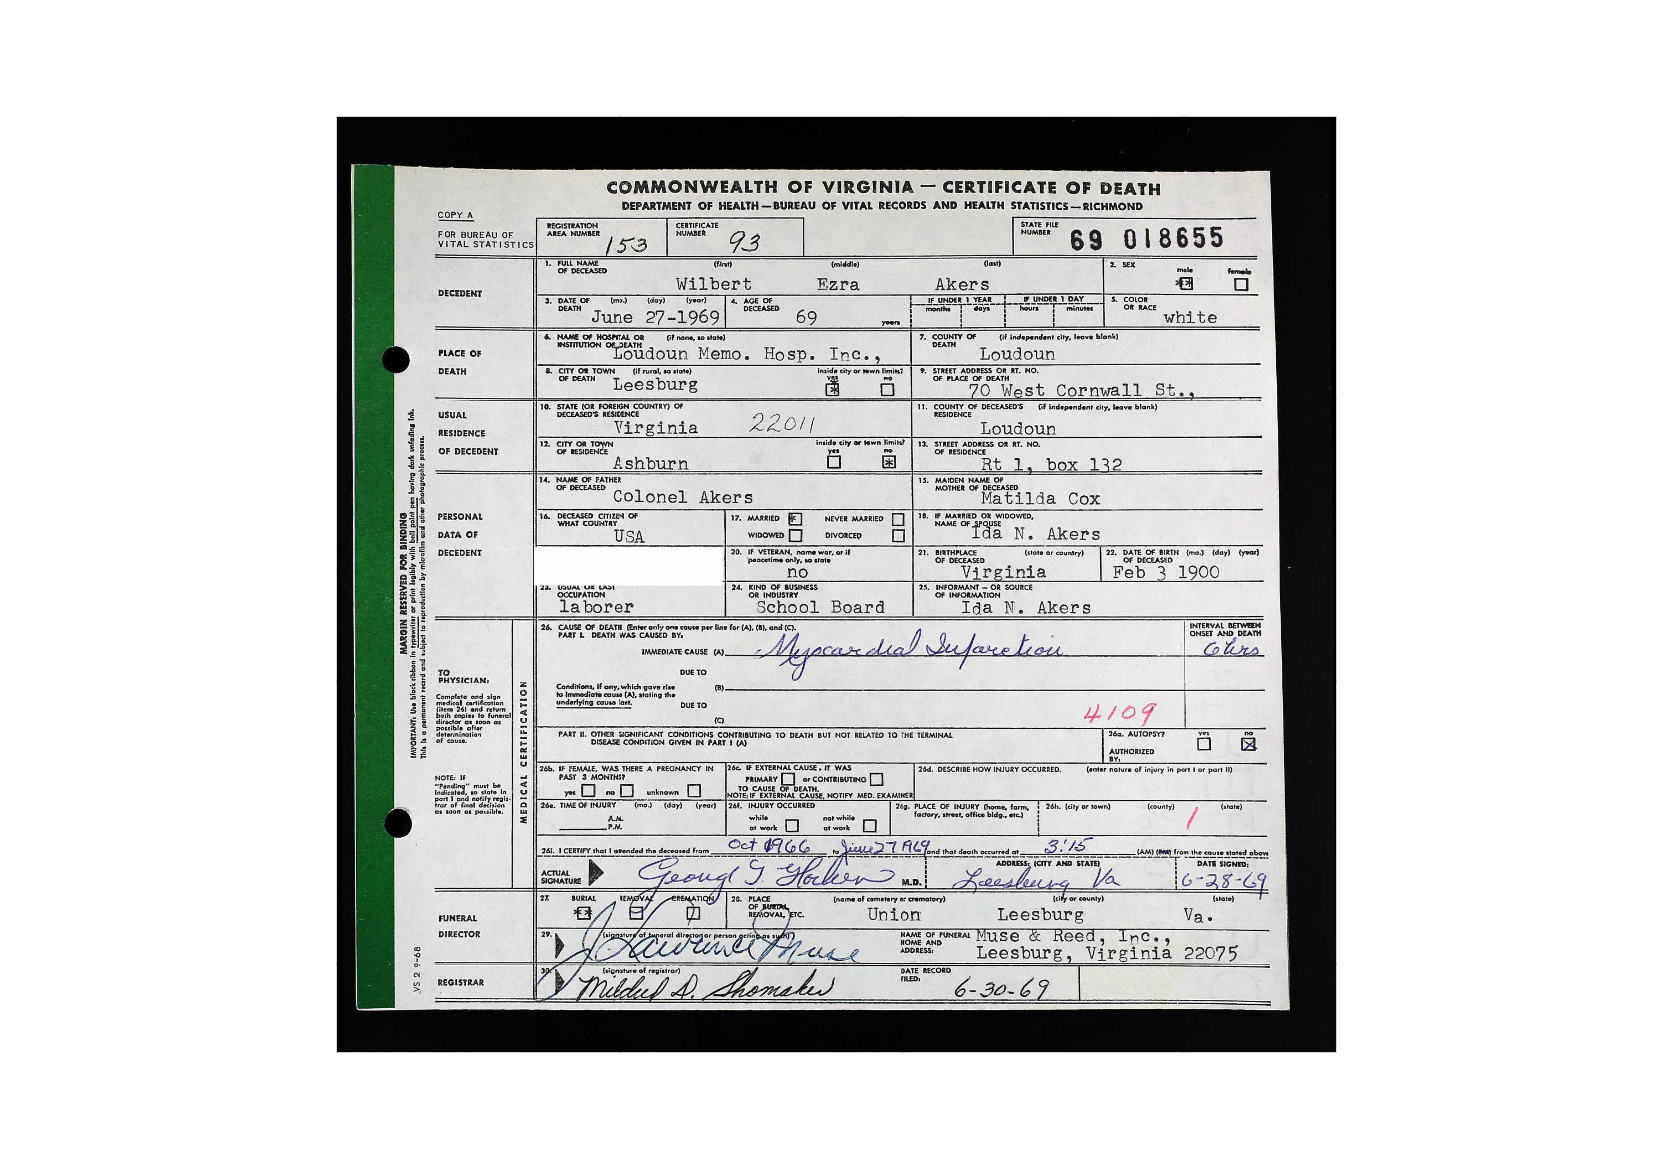 COMMONWEALTH OF VIRGINIA — CERTIFICATE OF DEATH
DEPARTMENT OF HEALTH—BUREAU OF VITAL RECORDS AND HEALTH STATISTICS—RICHMOND
COPY A
FOR BUREAU OF
VITAL STATISTICS
REGISTRATION
AREA NUMBER 153
CERTIFICATE
NUMBER 93
STATE FILE
NUMBER 69 018655
DECEDENT
1. FULL NAME (first) (middle) (last)
OF DECEASED
Wilbert Ezra Akers
2. SEX
male female
3. DATE OF (mo.) (day) (year)
DEATH June 27-1969
4. AGE OF
DECEASED 69 years
IF UNDER 1 YEAR IF UNDER 1 DAY
months days hours minutes
5. COLOR
OR RACE
white
PLACE OF
DEATH
6. NAME OF HOSPITAL OR (if none, so state)
INSTITUTION OF DEATH
Loudoun Memo. Hosp. Inc.,
7. COUNTY OF (if independent city, leave blank)
DEATH
Loudoun
8. CITY OR TOWN (if rural, so state) inside city or town limits?
OF DEATH Leesburg yes no
9. STREET ADDRESS OR RT. NO.
OF PLACE OF DEATH
70 West Cornwall St.,
USUAL
RESIDENCE
OF DECEDENT
10. STATE (OR FOREIGN COUNTRY) OF
DECEASED'S RESIDENCE
Virginia 22011
11. COUNTY OF DECEASED'S (if independent city, leave blank)
RESIDENCE
Loudoun
12. CITY OR TOWN inside city or town limits?
OF RESIDENCE yes no
Ashburn
13. STREET ADDRESS OR RT. NO.
OF RESIDENCE
Rt 1, box 132
PERSONAL
DATA OF
DECEDENT
14. NAME OF FATHER
OF DECEASED
Colonel Akers
15. MAIDEN NAME OF
MOTHER OF DECEASED
Matilda Cox
16. DECEASED CITIZEN OF
WHAT COUNTRY
USA
17. MARRIED NEVER MARRIED
WIDOWED DIVORCED
18. IF MARRIED OR WIDOWED,
NAME OF SPOUSE
Ida N. Akers
20. IF VETERAN, name war, or if
peacetime only, so state
no
21. BIRTHPLACE (state or country)
OF DECEASED
Virginia
22. DATE OF BIRTH (mo.) (day) (year)
OF DECEASED
Feb 3 1900
23. USUAL OR LAST
OCCUPATION
laborer
24. KIND OF BUSINESS
OR INDUSTRY
School Board
25. INFORMANT — OR SOURCE
OF INFORMATION
Ida N. Akers
MARGIN RESERVED FOR BINDING
IMPORTANT: Use black ribbon in typewriter or print legibly with ball point pen having dark unfading ink.
This is a permanent record and subject to reproduction by microfilm and other photographic process.
TO
PHYSICIAN:
Complete and sign
medical certification
(item 26) and return
both copies to funeral
director as soon as
possible after
determination
of cause.
NOTE: IF
"Pending" must be
indicated, so state in
part I and notify regis-
trar of final decision
as soon as possible.
MEDICAL CERTIFICATION
26. CAUSE OF DEATH (Enter only one cause per line for (A), (B), and (C).
PART I. DEATH WAS CAUSED BY:
INTERVAL BETWEEN
ONSET AND DEATH
IMMEDIATE CAUSE (A) Myocardial Infarction 6 hrs
DUE TO
Conditions, if any, which gave rise (B)
to immediate cause (A), stating the
underlying cause last. DUE TO
(C)
4109
PART II. OTHER SIGNIFICANT CONDITIONS CONTRIBUTING TO DEATH BUT NOT RELATED TO THE TERMINAL
DISEASE CONDITION GIVEN IN PART I (A)
26a. AUTOPSY? yes no
AUTHORIZED
BY:
26b. IF FEMALE, WAS THERE A PREGNANCY IN
PAST 3 MONTHS?
yes no unknown
26c. IF EXTERNAL CAUSE, IT WAS
PRIMARY or CONTRIBUTING
TO CAUSE OF DEATH.
NOTE: IF EXTERNAL CAUSE, NOTIFY MED. EXAMINER
26d. DESCRIBE HOW INJURY OCCURRED. (enter nature of injury in part I or part II)
26e. TIME OF INJURY (mo.) (day) (year)
A.M.
P.M.
26f. INJURY OCCURRED
while not while
at work at work
26g. PLACE OF INJURY (home, farm,
factory, street, office bldg., etc.)
26h. (city or town) (county) (state)
1
26i. I CERTIFY that I attended the deceased from Oct 1966 to June 27 1969 and that death occurred at 3:15 (AM) (PM) from the cause stated above
ACTUAL
SIGNATURE George T. M.D.
ADDRESS: (CITY AND STATE)
Leesburg Va
DATE SIGNED:
6-28-69
FUNERAL
DIRECTOR
27. BURIAL REMOVAL CREMATION
28. PLACE (name of cemetery or crematory) (city or county) (state)
OF BURIAL,
REMOVAL, ETC. Union Leesburg Va.
29. (signature of funeral director or person acting as such)
J Lawrence Muse
NAME OF FUNERAL
HOME AND
ADDRESS:
Muse & Reed, Inc.,
Leesburg, Virginia 22075
REGISTRAR
30. (signature of registrar)
Mildred D. Shomaker
DATE RECORD
FILED:
6-30-69
VS 2 9-68